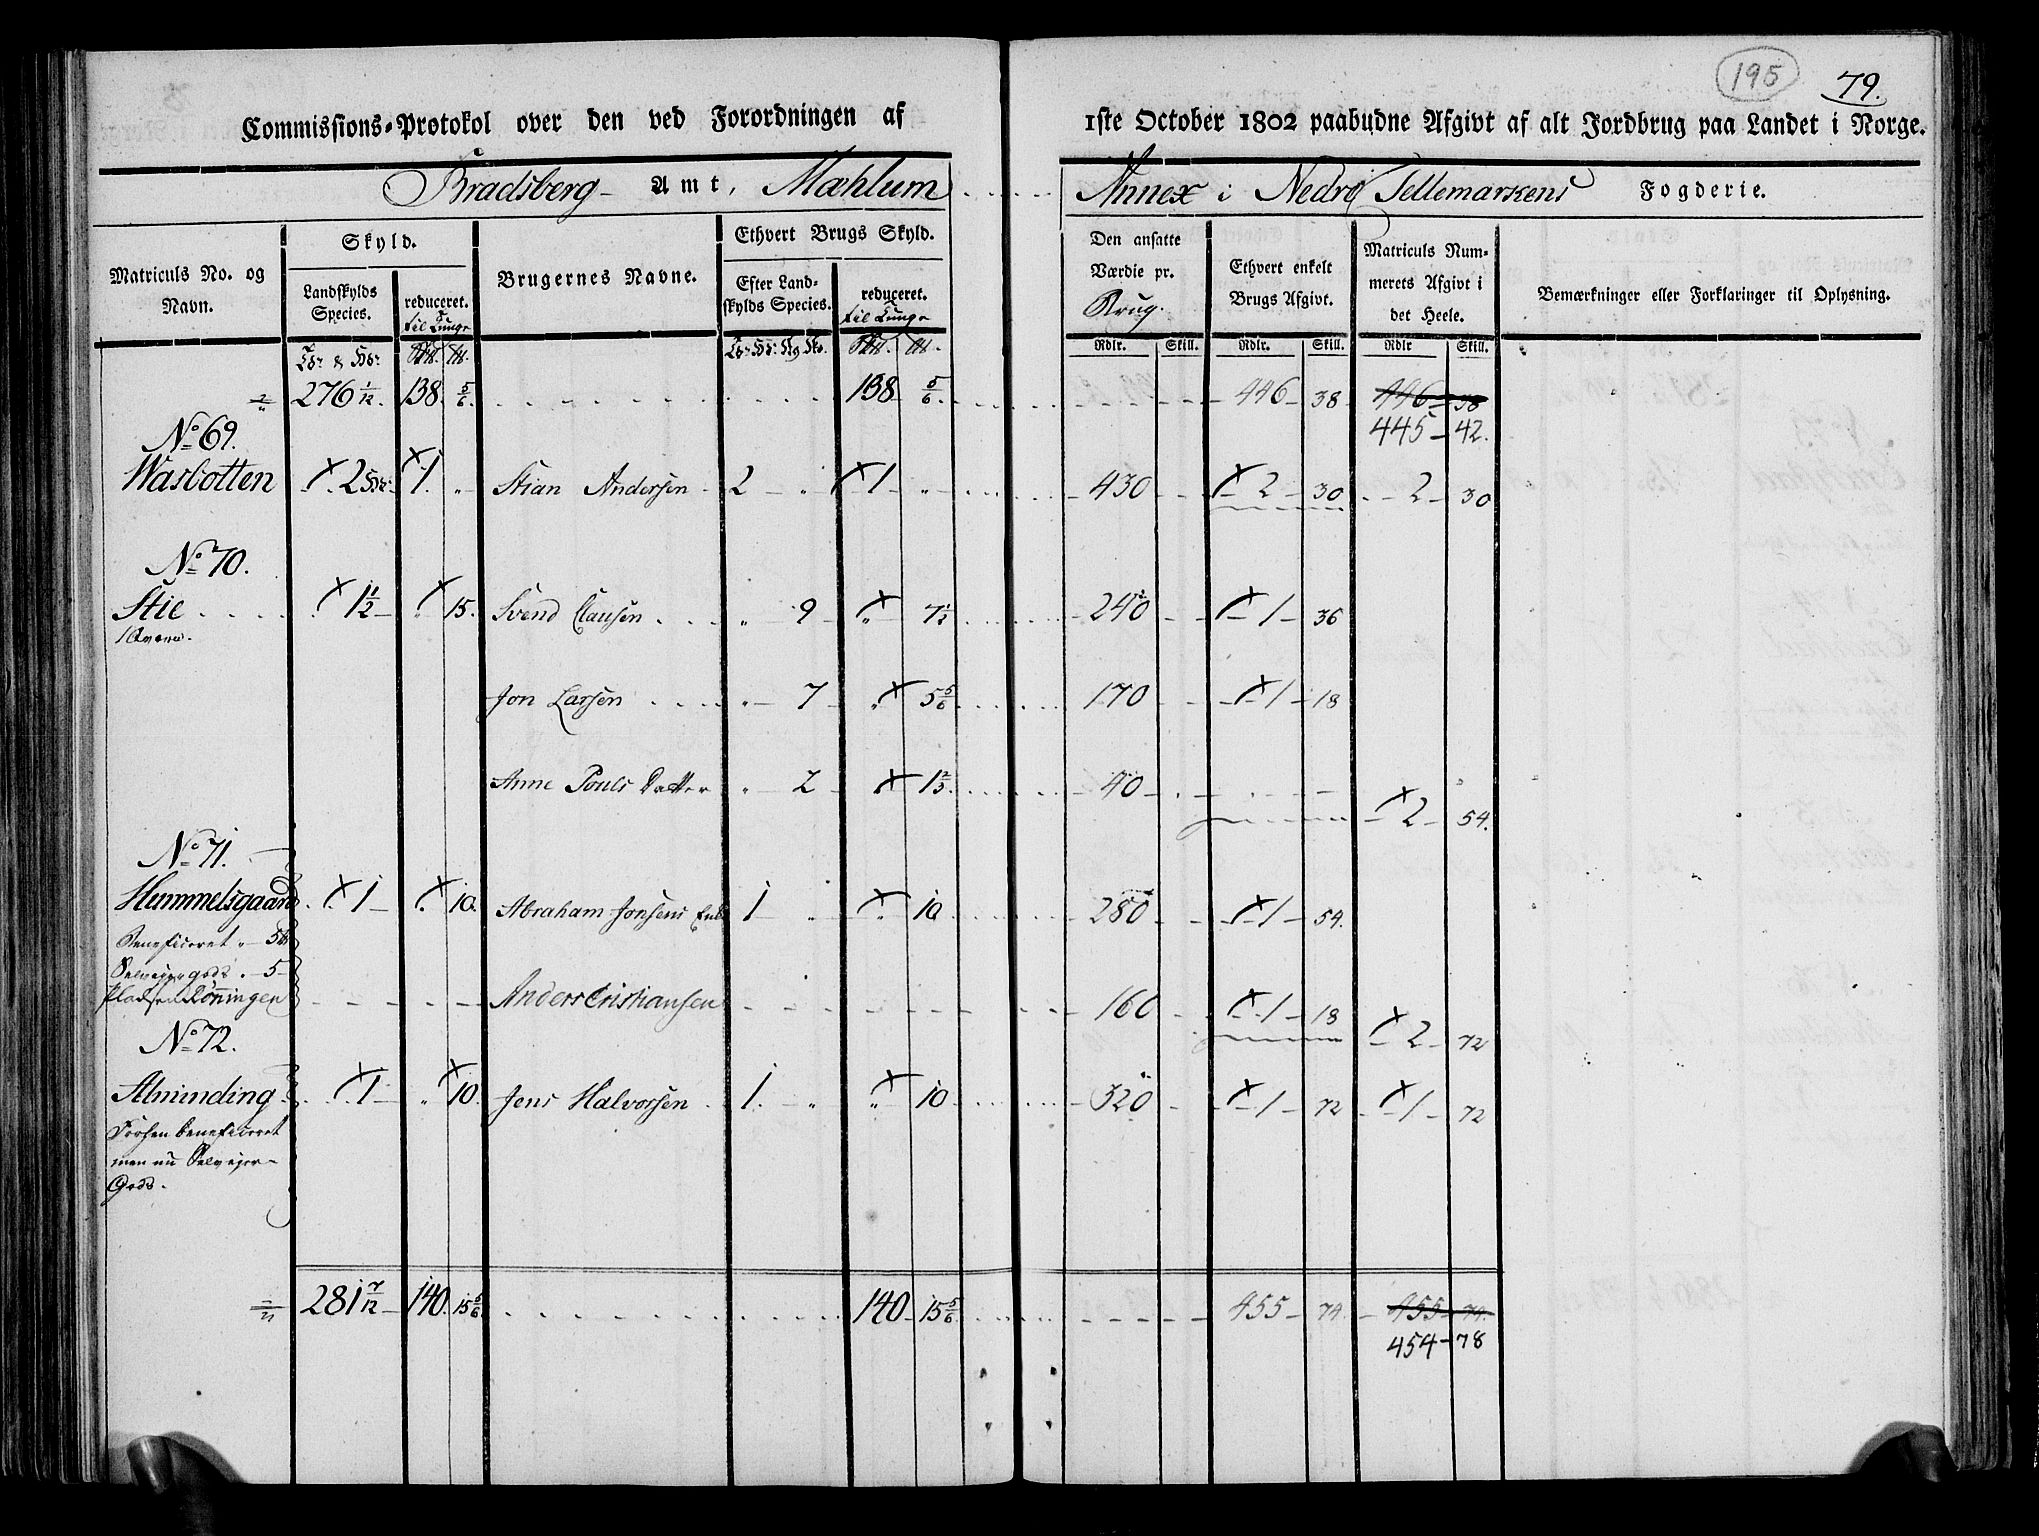 195 79.
Commissions-Protokol over den ved Forordningen af 1ste October 1802 paabudne Afgivt af alt Jordbrug paa Landet i Norge.
Bradsberg Amt, Mæhlum Annex i Nedre Tellemarkens Fogderie.
Matriculs No. og Navn.
Skyld.
Landskylds Species.
reduceret. til Tunge
Brugernes Navne.
Ethvert Brugs Skyld.
Efter Landskylds Species.
reduceret. til Tunge
Den ansatte Værdie pr. Brug.
Ethvert enkelt Brugs Afgivt.
Matriculs Nummerets Afgivt i det Heele.
Bemærkninger eller Forklaringer til Oplysning.
Rdlr. Skill. Rdlr. Skill. Rdlr Skill.
276 1/12 138. 5/6 138 5/6 446 - 38 446 - 38
445 - 42.
No 69.
Wasbotten 2 1. " Stian Andersen 2 " 1 " 430 2 - 30 2 - 30
No 70.
Stie 1 1/2 " 15. Svend Clausen " 9 " 7 1/2 240 1 - 36
1 Qvern.
Jon Larsen " 7 " 5 5/6 170 1 - 18
Anne Pouls Datter " 2 " 1 2/3 40 2 - 54.
No 71.
Hummelsgaard 1 10. Abraham Jonsens Enke 1 " " 10 280 1 - 54.
Beneficeret " 5
Selveyergods " 5
Pladsen Röningen Anders Cristiansen 160 1 - 18 2 - 72
No 72.
Alminding 1 " 10. Jens Halvorsen 1. " " 10 320 1 - 72 1 - 72
Forhen beneficeret
men nu Selveyer-
Gods.
281 7/12 140. 15 5/6 140 15 5/6 455 - 74 455 - 74.
454 - 78